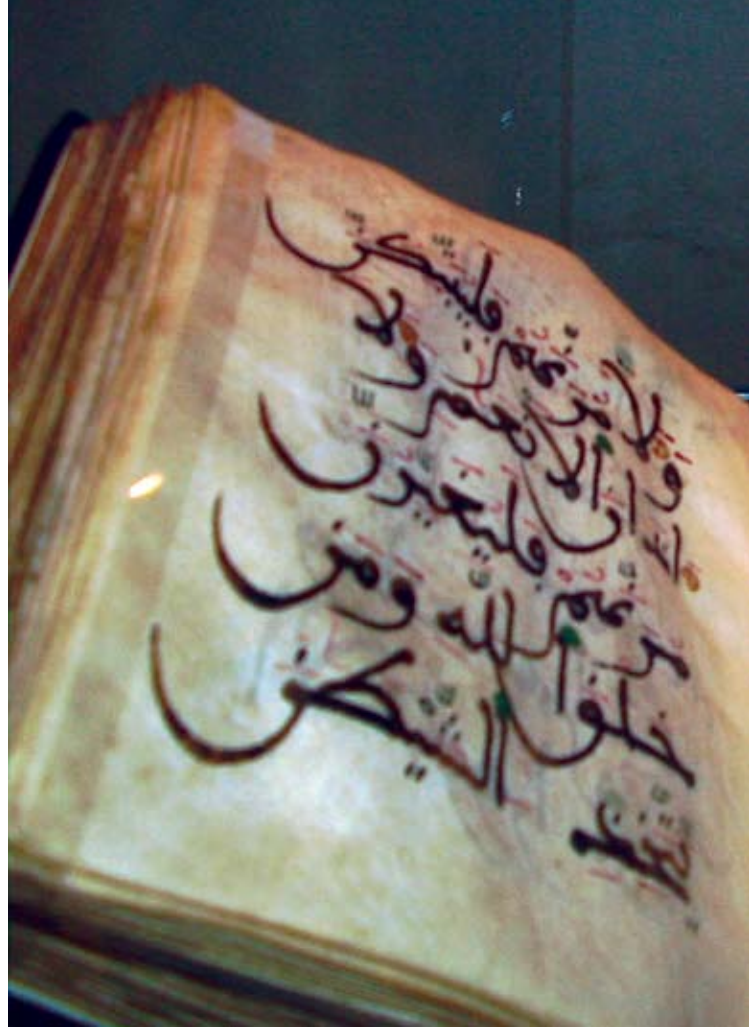 ولامرنهم فليبتكن
ءاذان الانعم ولا
مرنهم فليغيرن
خلق الله ومن
يتخذ الشيطن